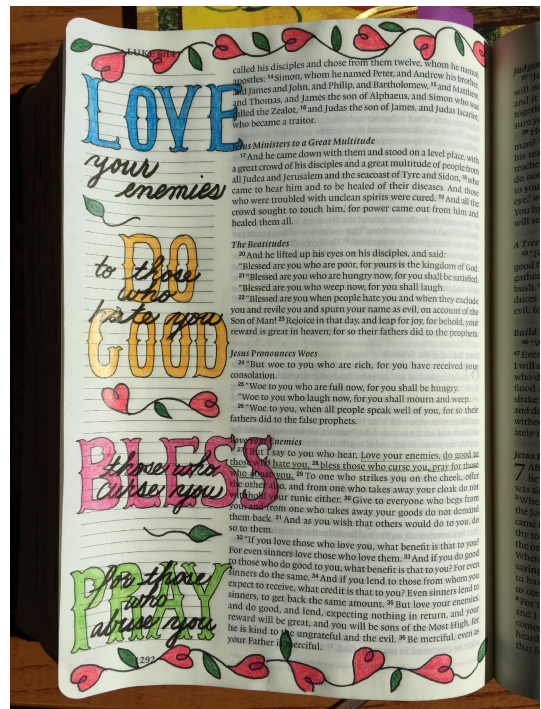 LUKE 6:14
LOVE
your
enemies
DO
to those
who
hate you
GOOD
BLESS
those who
curse you
PRAY
for those
who
abuse you
297
called his disciples and chose from them twelve, whom he named
apostles: 14 Simon, whom he named Peter, and Andrew his brother,
and James and John, and Philip, and Bartholomew, 15 and Matthew,
and Thomas, and James the son of Alphaeus, and Simon who was
called the Zealot, 16 and Judas the son of James, and Judas Iscariot,
who became a traitor.
Jesus Ministers to a Great Multitude
17 And he came down with them and stood on a level place, with
a great crowd of his disciples and a great multitude of people from
all Judea and Jerusalem and the seacoast of Tyre and Sidon, 18 who
came to hear him and to be healed of their diseases. And those
who were troubled with unclean spirits were cured. 19 And all the
crowd sought to touch him, for power came out from him and
healed them all.
The Beatitudes
20 And he lifted up his eyes on his disciples, and said:
"Blessed are you who are poor, for yours is the kingdom of God.
21 "Blessed are you who are hungry now, for you shall be satisfied.
"Blessed are you who weep now, for you shall laugh.
22 "Blessed are you when people hate you and when they exclude
you and revile you and spurn your name as evil, on account of the
Son of Man! 23 Rejoice in that day, and leap for joy, for behold, your
reward is great in heaven; for so their fathers did to the prophets.
Jesus Pronounces Woes
24 "But woe to you who are rich, for you have received your
consolation.
25 "Woe to you who are full now, for you shall be hungry.
"Woe to you who laugh now, for you shall mourn and weep.
26 "Woe to you, when all people speak well of you, for so their
fathers did to the false prophets.
Love Your Enemies
27 "But I say to you who hear, Love your enemies, do good to
those who hate you, 28 bless those who curse you, pray for those
who abuse you. 29 To one who strikes you on the cheek, offer
the other also, and from one who takes away your cloak do not
withhold your tunic either. 30 Give to everyone who begs from
you, and from one who takes away your goods do not demand
them back. 31 And as you wish that others would do to you, do
so to them.
32 "If you love those who love you, what benefit is that to you?
For even sinners love those who love them. 33 And if you do good
to those who do good to you, what benefit is that to you? For even
sinners do the same. 34 And if you lend to those from whom you
expect to receive, what credit is that to you? Even sinners lend to
sinners, to get back the same amount. 35 But love your enemies,
and do good, and lend, expecting nothing in return, and your
reward will be great, and you will be sons of the Most High, for
he is kind to the ungrateful and the evil. 36 Be merciful, even as
your Father is merciful.